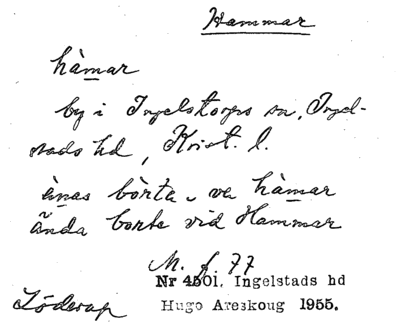 Hammar
hàmar
by i Ingelstorps sn, Ingel-
stads hd, Krist. l.
ànas bòrta, ve hàmar
ända borta vid Hammar
M. f. 77
Nr 4501. Ingelstads hd
Löderup Hugo Areskoug 1955.